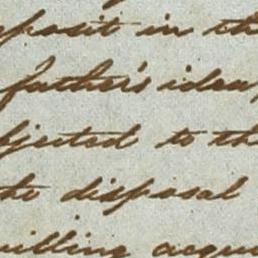 posit in th
father's idea,
bjected to th
he disposal
willing acqu